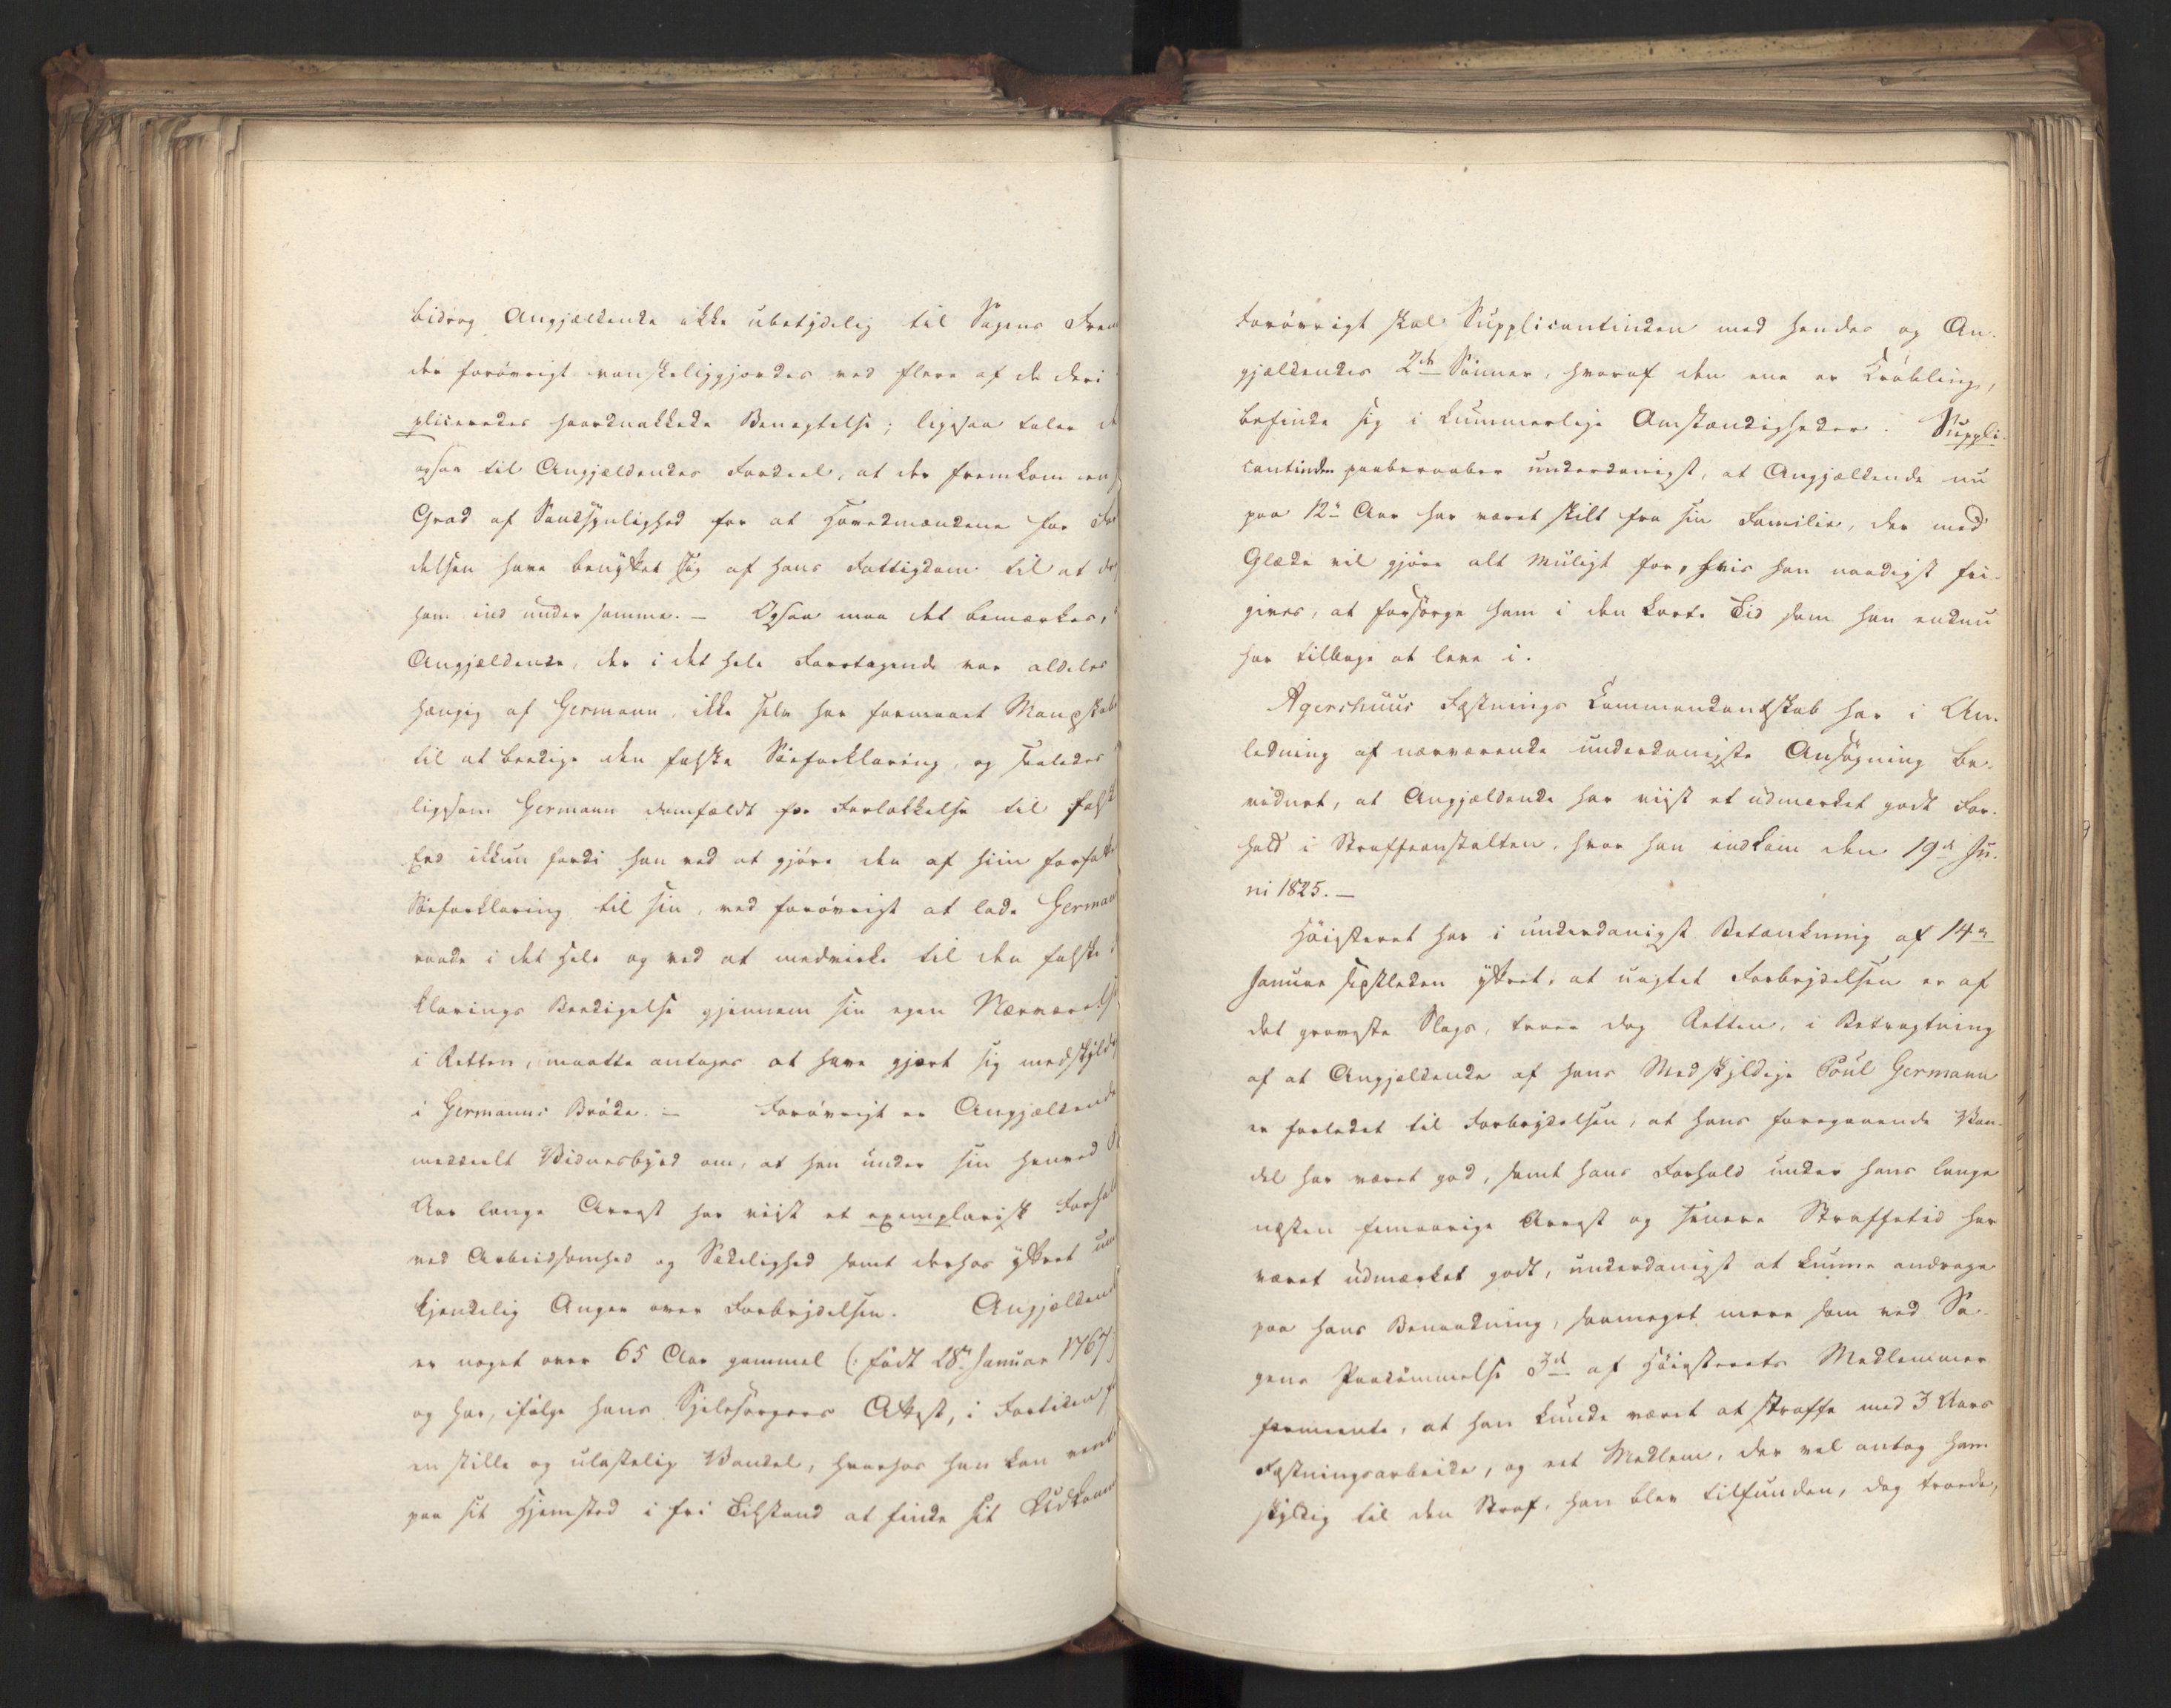 bidrog Angjældende ikke ubetydelig til Sagens Frem
der forøvrigt vanskeliggjordes ved flere af de deri
pliceredes haardnakkede Benegtelse; ligesaa taler d
ogsaa til Angjældendes Fordeel, at der fremkom en
Grad af Sandsynlighed for at Hovedmændene for For
delsen have benyttet sig af hans Fattigdom til at dr
ham ind under samme. – Ogsaa maa det bemærkes,
Angjældende, der i det hele Foretagende var aldeles
hængig af Germann, ikke selv har formaaet Mandskab
til at beedige den falske Søeforklaring, og saaledes
ligesom Germann domfældt for Forlokkelse til falsk
Eed ikkun fordi han ved at gjøre den af hiin forfatte
Søeforklaring til sin, ved forøvrigt at lade German
raade i det Hele og ved at medvirke til den falske
klarings Beedigelse gjennem sin egen Nærværelse
i Retten, maatte antages at have gjort sig medskyldi
i Germanns Brøde. – Forøvrigt er Angjældende
meddeelt Vidnesbyrd om, at han under sin henved
Aar lange Arrest har viist et exemplarisk Forhol
ved Arbeidsomhed og Sædelighed samt derhos yttret
kjendelig Anger over Forbrydelsen. Angjælden
er noget over 65 Aar gammel (: født 28de Januar 1767
og har, ifølge hans Sjelesørgers Attest, i Fortiden f
en stille og ulastelig Vandel, hvorhos han kan vent
paa sit Hjemsted i fri Tilstand at finde sit Udkomm
Forøvrigt skal Supplicantinden med hendes og An-
gjældendes 2de Sønner, hvoraf den ene er Krøbling,
befinde sig i kummerlige Omstændigheder. Suppli-
cantinden paaberaaber underdanigst, at Angjældende nu
paa 12te Aar har været skilt fra sin Familie, der med
Glæde vil gjøre alt muligt for, hvis han naadigst fri-
gives, at forsørge ham i den korte Tid som han endnu
har tilbage at leve i.
Agershuus Fæstnings Commandantskab har i An-
ledning af nærværende underdanigste Ansøgning be-
vidnet, at Angjældende har viist et udmærket godt For-
hold i Straffeanstalten, hvor han indkom den 19de Ju-
ni 1825. –
Høiesteret har i underdanigst Betænkning af 14de
Januar sistleden yttret, at uagtet Forbrydelsen er af
det groveste Slags, troer dog Retten, i Betragtning
af at Angjældende af hans Medskyldige Poul Germann
er forledet til Forbrydelsen, at hans foregaaende Van-
del har været god, samt hans Forhold under hans lange
næsten femaarige Arrest og senere Straffetid har
været udmærket godt, underdanigst at kunne andrage
paa hans Benaadning, saameget mere som ved Sa-
gens Paadømmelse 3de af Høiesterets Medlemmer
formeente, at han kunde været at straffe med 3 Aars
Fæstningsarbeide, og eet Medlem, der vel antog ham
skyldig til den Straf, han blev tilfunden, dog troede,